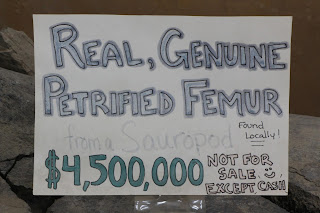 REAL, GENUINE
PETRIFIED FEMUR
from a Sauropod
Found
Locally!
$4,500,000
NOT FOR
SALE
EXCEPT CASH